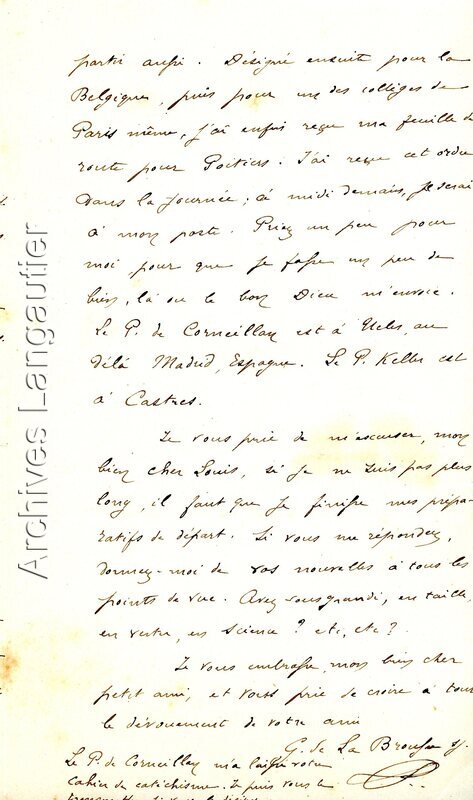 partir aussi. Désigné ensuite pour la
Belgique, puis pour un des collèges de
Paris même, j'ai enfin reçu ma feuille de
route pour Poitiers. J'ai reçu cet ordre
dans la journée ; à midi demain, je serai
à mon poste. Priez un peu pour
moi pour que je fasse un peu de
bien, là où le bon Dieu m'envoie.
Le P. de Corneillan est à Uclès, au
délà Madrid, Espagne. Le P. Keller est
à Castres.
Je vous prie de m'excuser, mon
bien cher Louis, si je ne suis pas plus
long, il faut que je finisse mes prépa-
ratifs de départ. Si vous me répondez,
donnez-moi de vos nouvelles à tous les
points de vue. Avez vous grandi, en taille,
en vertu, en science ? etc, etc ?
Je vous embrasse, mon bien cher
petit ami, et vous prie de croire à tout
le dévouement de votre ami
G. de La Brousse
Le P. de Corneillan m'a laissé votre
cahier de catéchisme. Je puis vous le
Archives Langautier